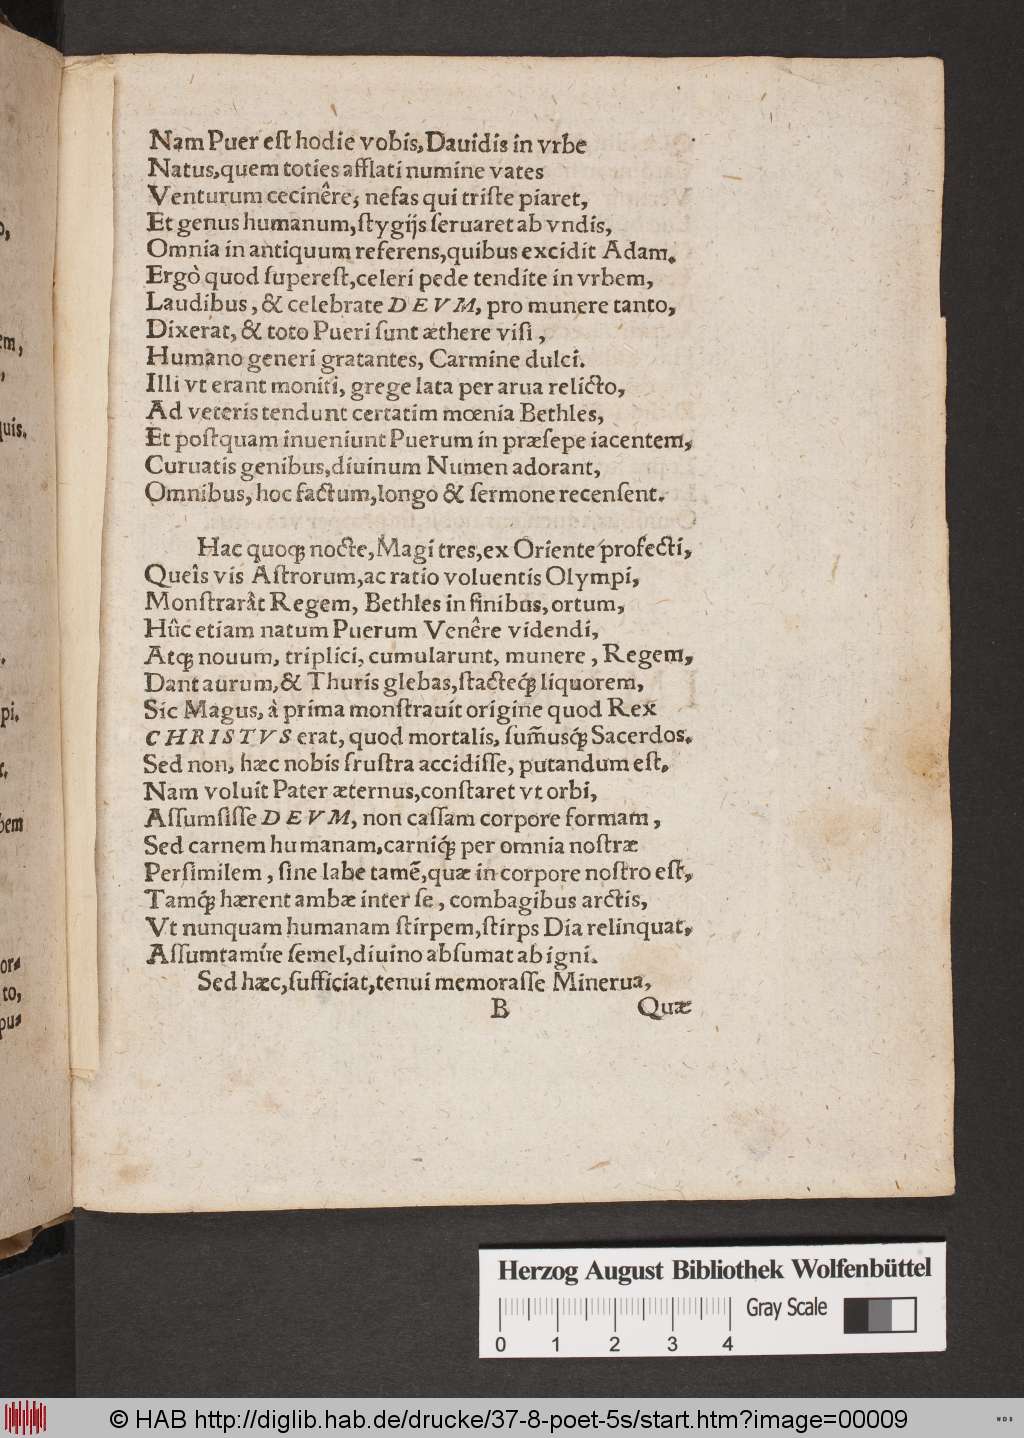 Nam Puer eſt hodie vobis, Dauidis in vrbe
Natus, quem toties afflati numine vates
Venturum cecinêre, nefas qui triſte piaret,
Et genus humanum, ſtygijs ſeruaret ab vndis,
Omnia in antiquum referens, quibus excidit Adam.
Ergò quod ſupereſt, celeri pede tendite in vrbem,
Laudibus, & celebrate DEVM, pro munere tanto,
Dixerat, & toto Pueri ſunt æthere viſi,
Humano generi gratantes, Carmine dulci.
Illi vt erant moniti, grege lata per arua relicto,
Ad veteris tendunt certatim mœnia Bethles,
Et poſtquam inueniunt Puerum in præſepe iacentem,
Curuatis genibus, diuinum Numen adorant,
Omnibus, hoc factum, longo & ſermone recenſent.
Hac quoqꝫ nocte, Magi tres, ex Oriente profecti,
Queîs vis Aſtrorum, ac ratio voluentis Olympi,
Monſtrarât Regem, Bethles in finibus, ortum,
Hûc etiam natum Puerum Venêre videndi,
Atqꝫ nouum, triplici, cumularunt, munere, Regem,
Dant aurum, & Thuris glebas, ſtacteq́ꝫ liquorem,
Sic Magus, à prima monſtrauit origine quod Rex
CHRISTVS erat, quod mortalis, ſum̃usq́ꝫ Sacerdos.
Sed non, hæc nobis fruſtra accidiſſe, putandum eſt.
Nam voluit Pater æternus, conſtaret vt orbi,
Aſſumſiſſe DEVM, non caſſam corpore formam,
Sed carnem humanam, carniq́ꝫ per omnia noſtræ
Perſimilem, ſine labe tamẽ, quæ in corpore noſtro eſt,
Tamq́ꝫ hærent ambæ inter ſe, combagibus arctis,
Vt nunquam humanam ſtirpem, ſtirps Dia relinquat,
Aſſumtamúe ſemel, diuino abſumat ab igni.
Sed hæc, ſufficiat, tenui memoraſſe Minerua,
B Quæ
Herzog August Bibliothek Wolfenbüttel
Gray Scale
0 1 2 3 4
© HAB http://diglib.hab.de/drucke/37-8-poet-5s/start.htm?image=00009